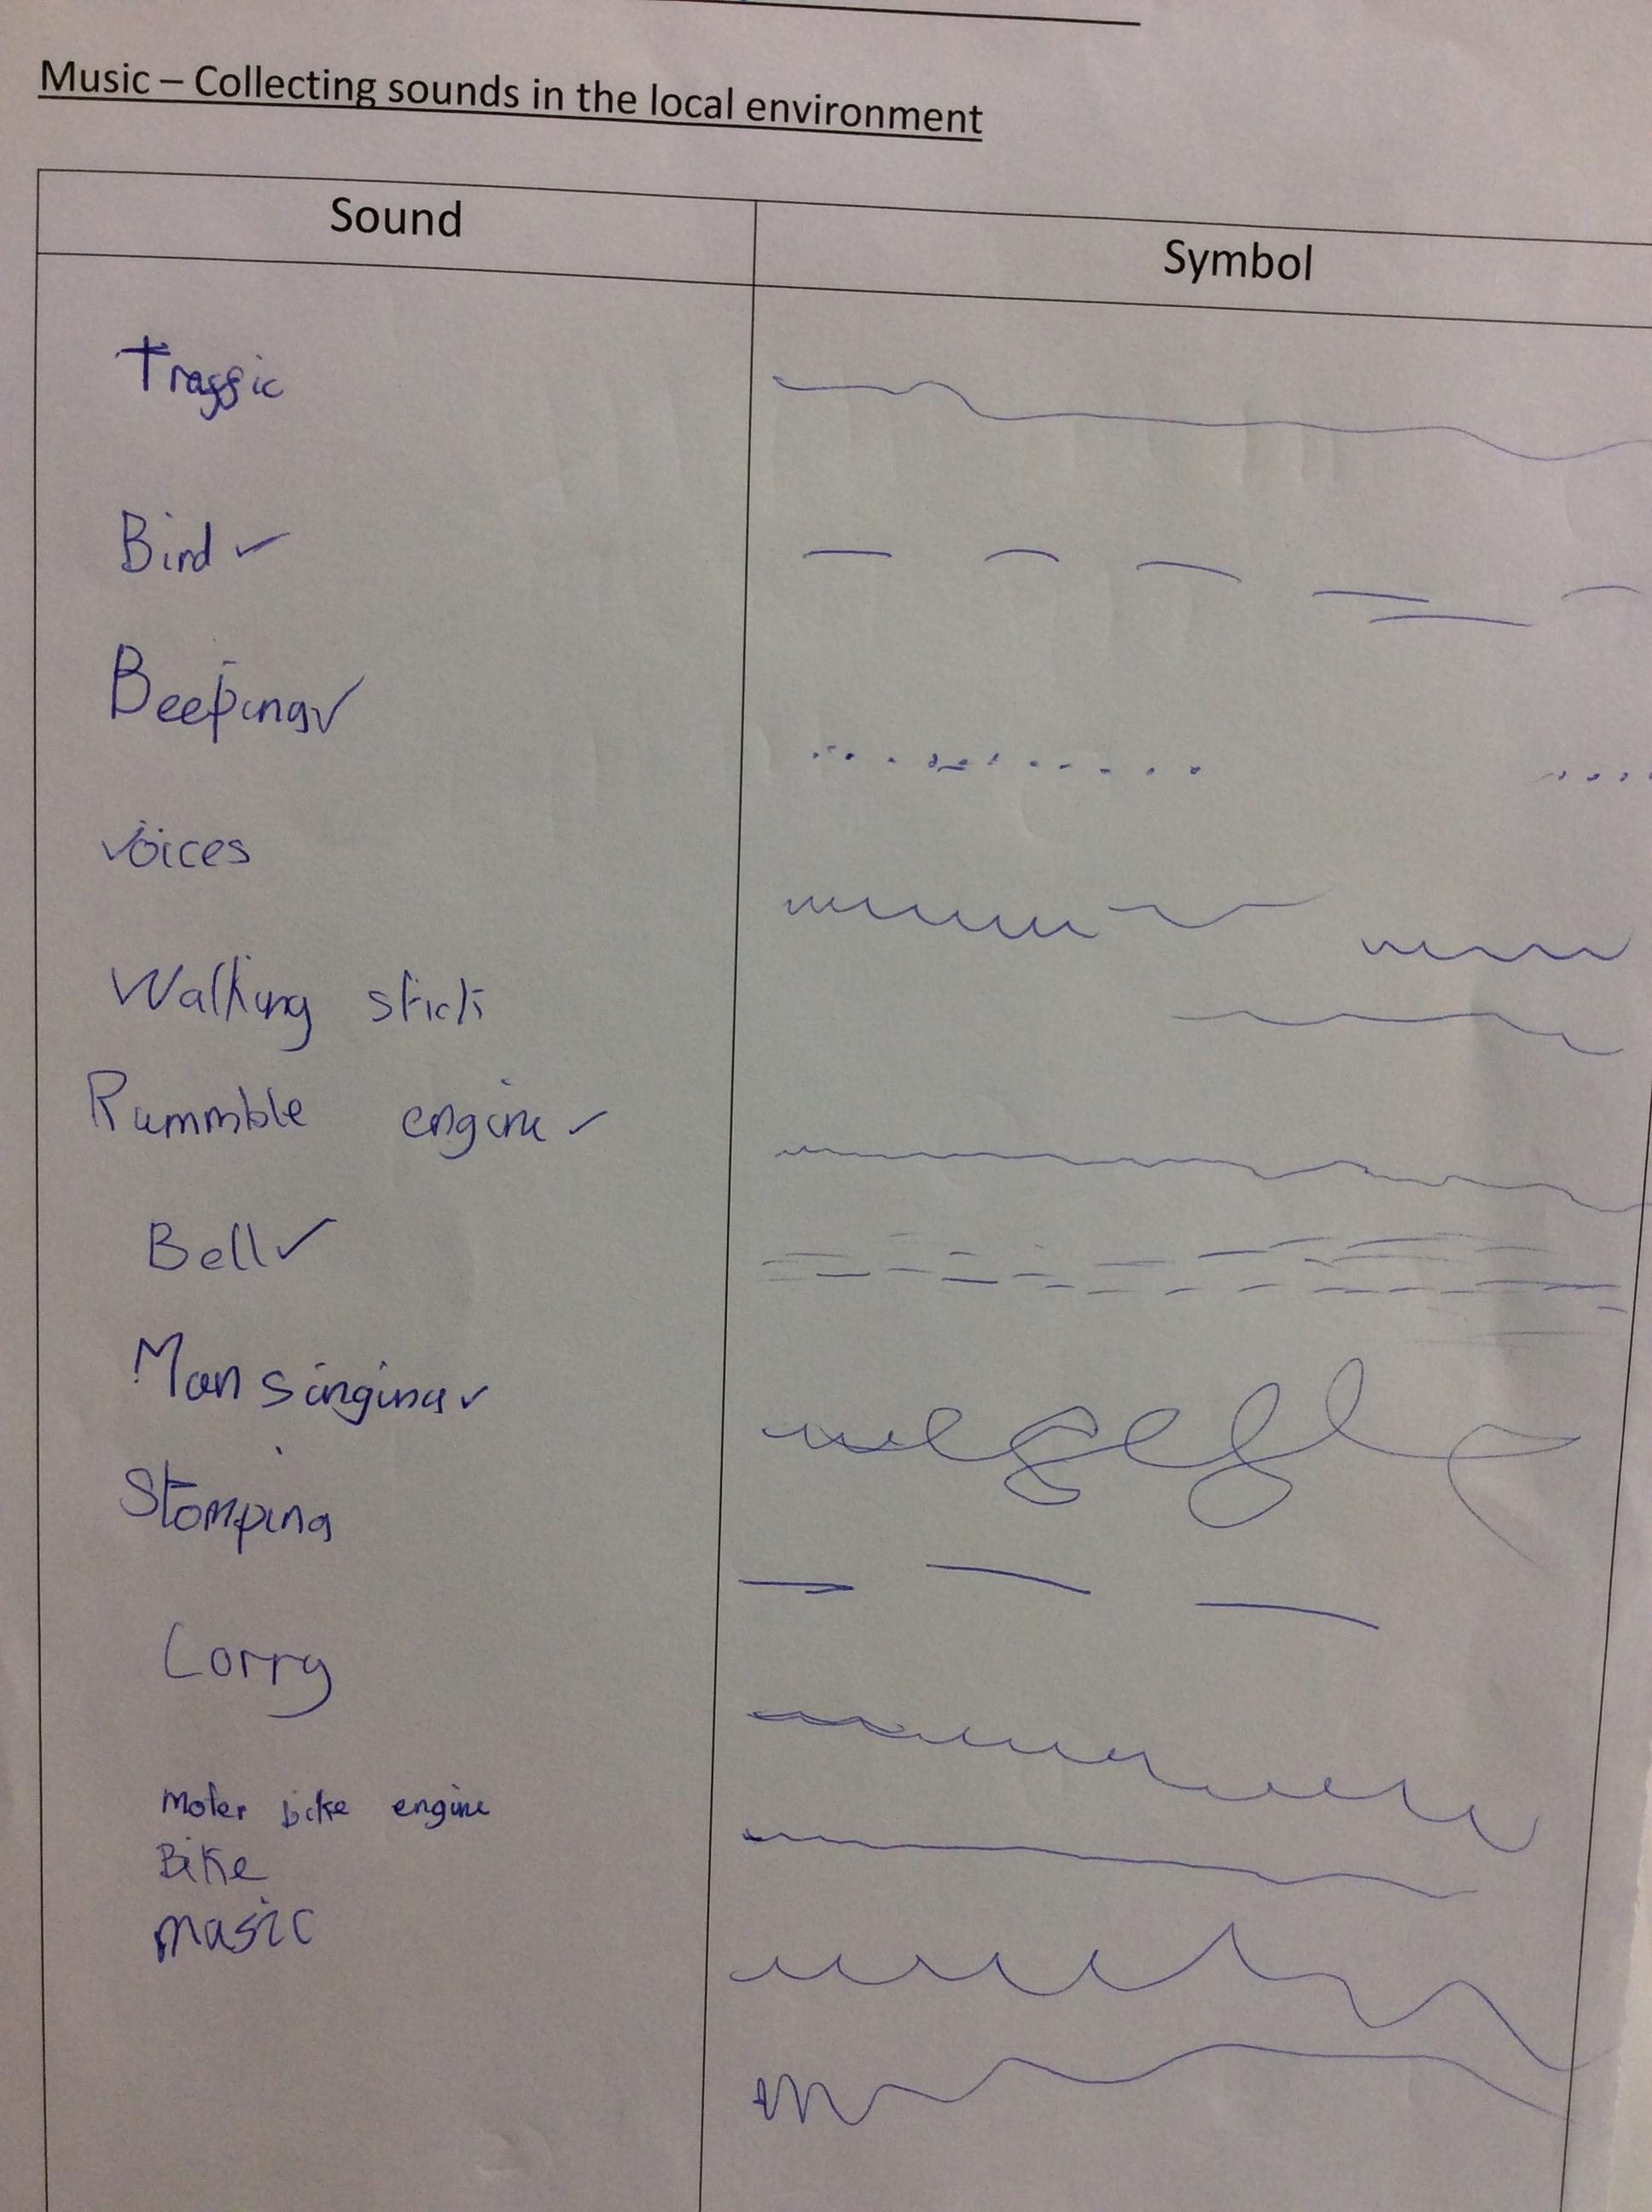 Music – Collecting sounds in the local environment
Sound Symbol
Traffic
Bird ✓
Beeping ✓
Voices
Walking stick
Rummble engine ✓
Bell ✓
Man singing ✓
Stomping
Lorry
Moter bike engine
Bike
music